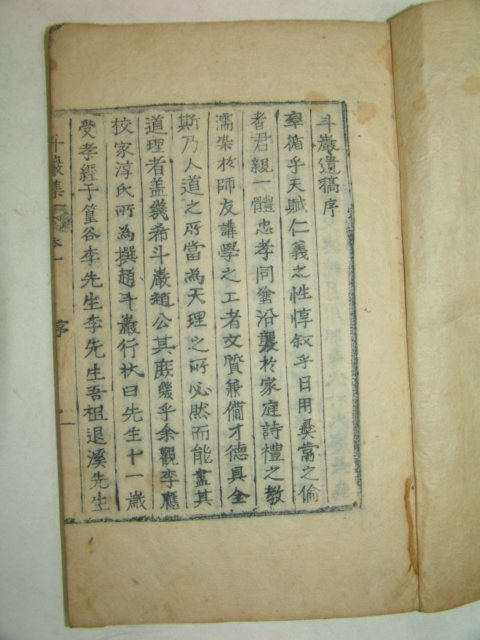 斗巖遺稿序
率循乎天賦仁義之性惇敘乎日用彛常之倫
者君親一體忠孝同倫沿襲於家庭詩禮之教
濡染於師友講學之工者文質兼備才德具全
斯乃人道之所當為天理之所必然而能盡其
道理者盖幾希斗巖趙公其庶幾乎余觀李應
校家淳氏所為撰趙斗巖行狀曰先生十一歲
受孝經于篁谷李先生李先生吾祖退溪先生
斗巖集
卷一
序
一